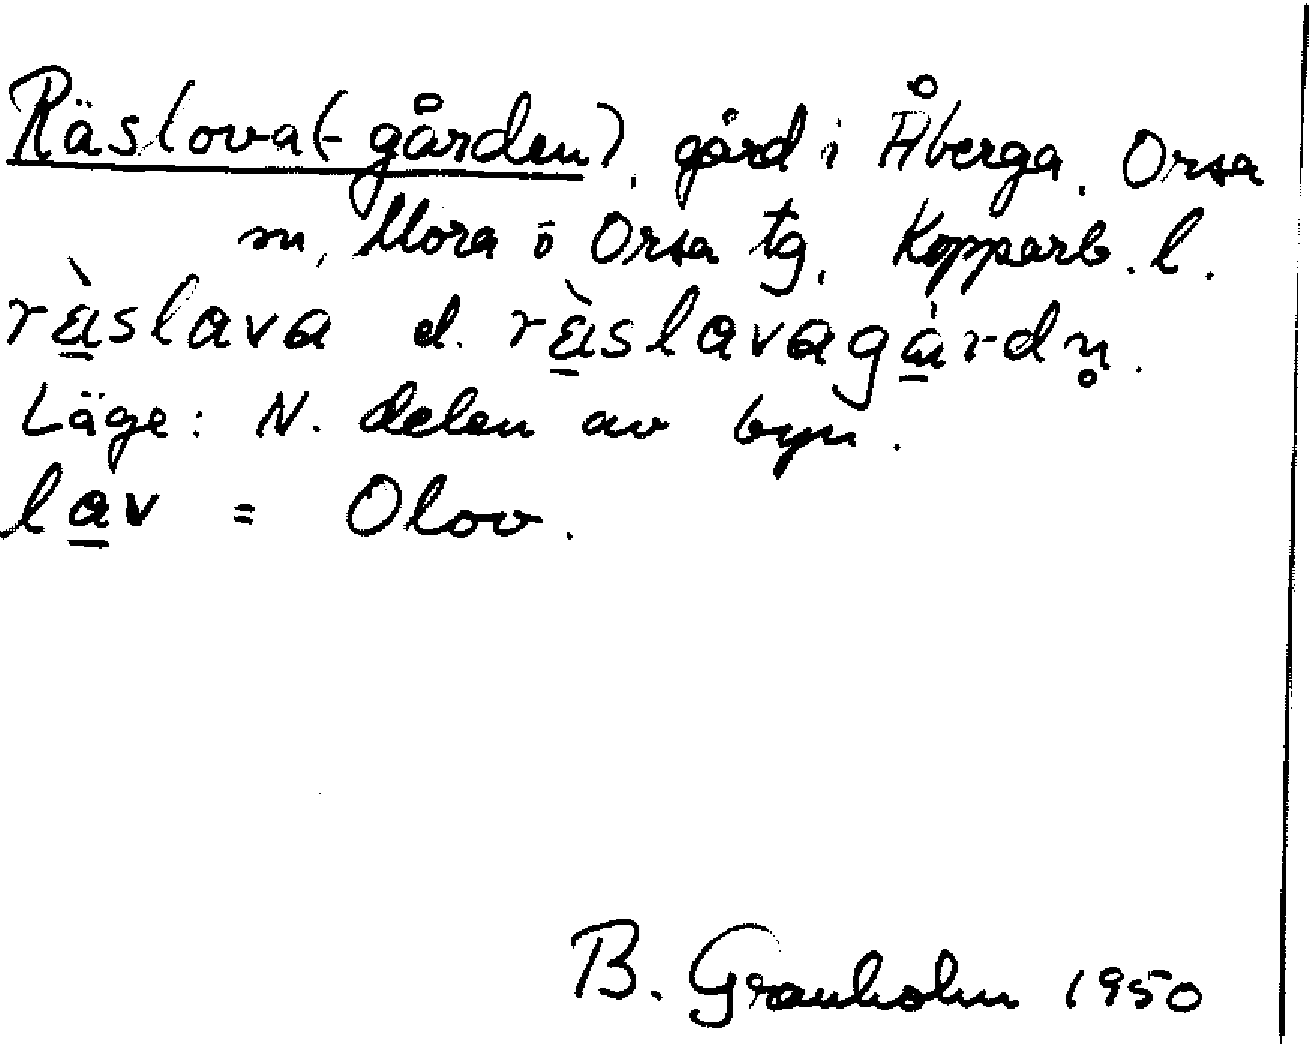 Räslova(-gården), gård i Åberga, Orsa
sn, Mora o Orsa tg, Kopparb. l.
rä̀slava el. rä̀slavagärdn̥.
Läge: N. delen av byn.
lav = Olov.
B. Granholm 1950